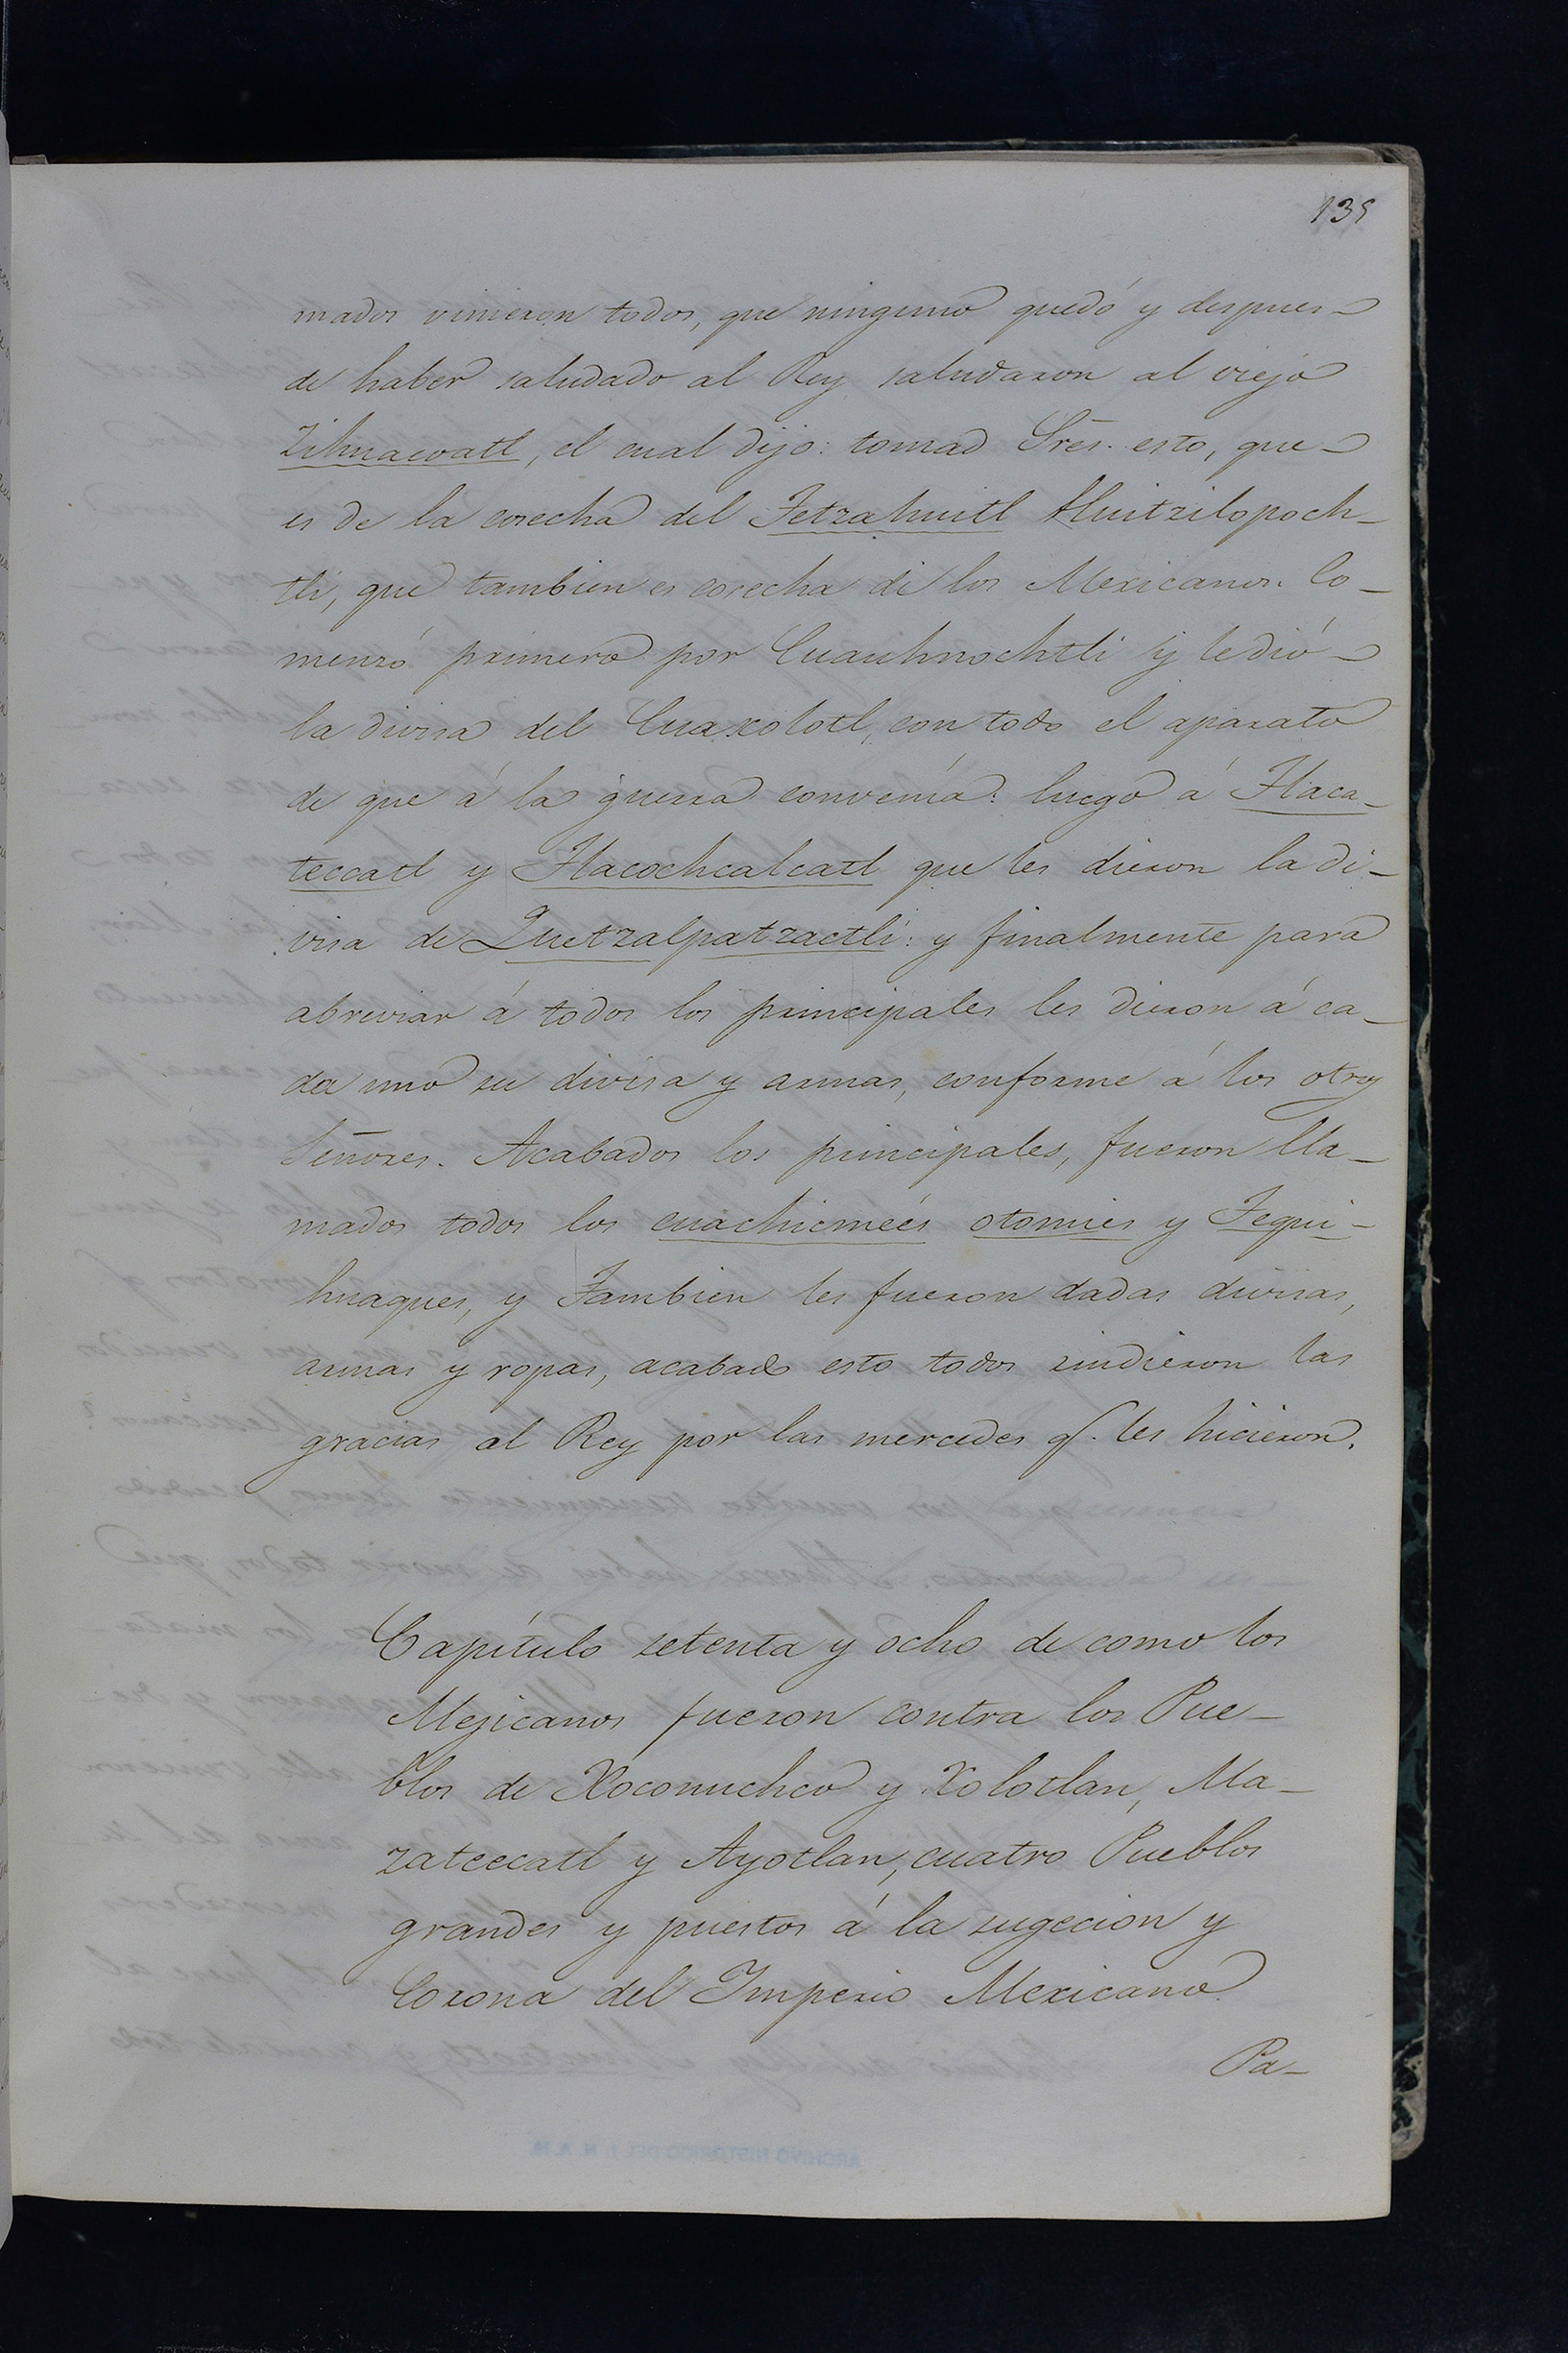 135
mados vinieron todos, que ninguno quedó y despues
de haber saludado al Rey saludaron al viejo
Zihuacoatl, el cual dijo: tomad Srēs. esto, que
es de la cosecha del Tetzahuitl Huitzilopoch-
tli, que tambien es cosecha de los Mexicanos. Co-
menzó primero por Cuauhnochtli y le dió
la divisa del Cuaxolotl, con todo el aparato
de que á la guerra convenía: luego á Tlaca-
teccatl y Tlacochcalcatl que les dieron la di-
visa de Quetzalpatzactli: y finalmente para
abreviar á todos los principales les dieron á ca-
da uno su divisa y armas, conforme á los otros
Señores. Acabados los principales, fueron lla-
mados todos los cuachicmeés otomies y Tequi-
huaques, y Tambien les fueron dadas divisas,
armas y ropas, acabado esto todos rindieron las
gracias al Rey por las mercedes q. les hicieron.
Capítulo setenta y ocho de como los
Mejicanos fueron contra los Pue-
blos de Xoconuchco y Xolotlan, Ma-
zateecatl y Ayotlan, cuatro Pueblos
grandes y puestos á la sugecion y
Corona del Imperio Mexicano
Pa-